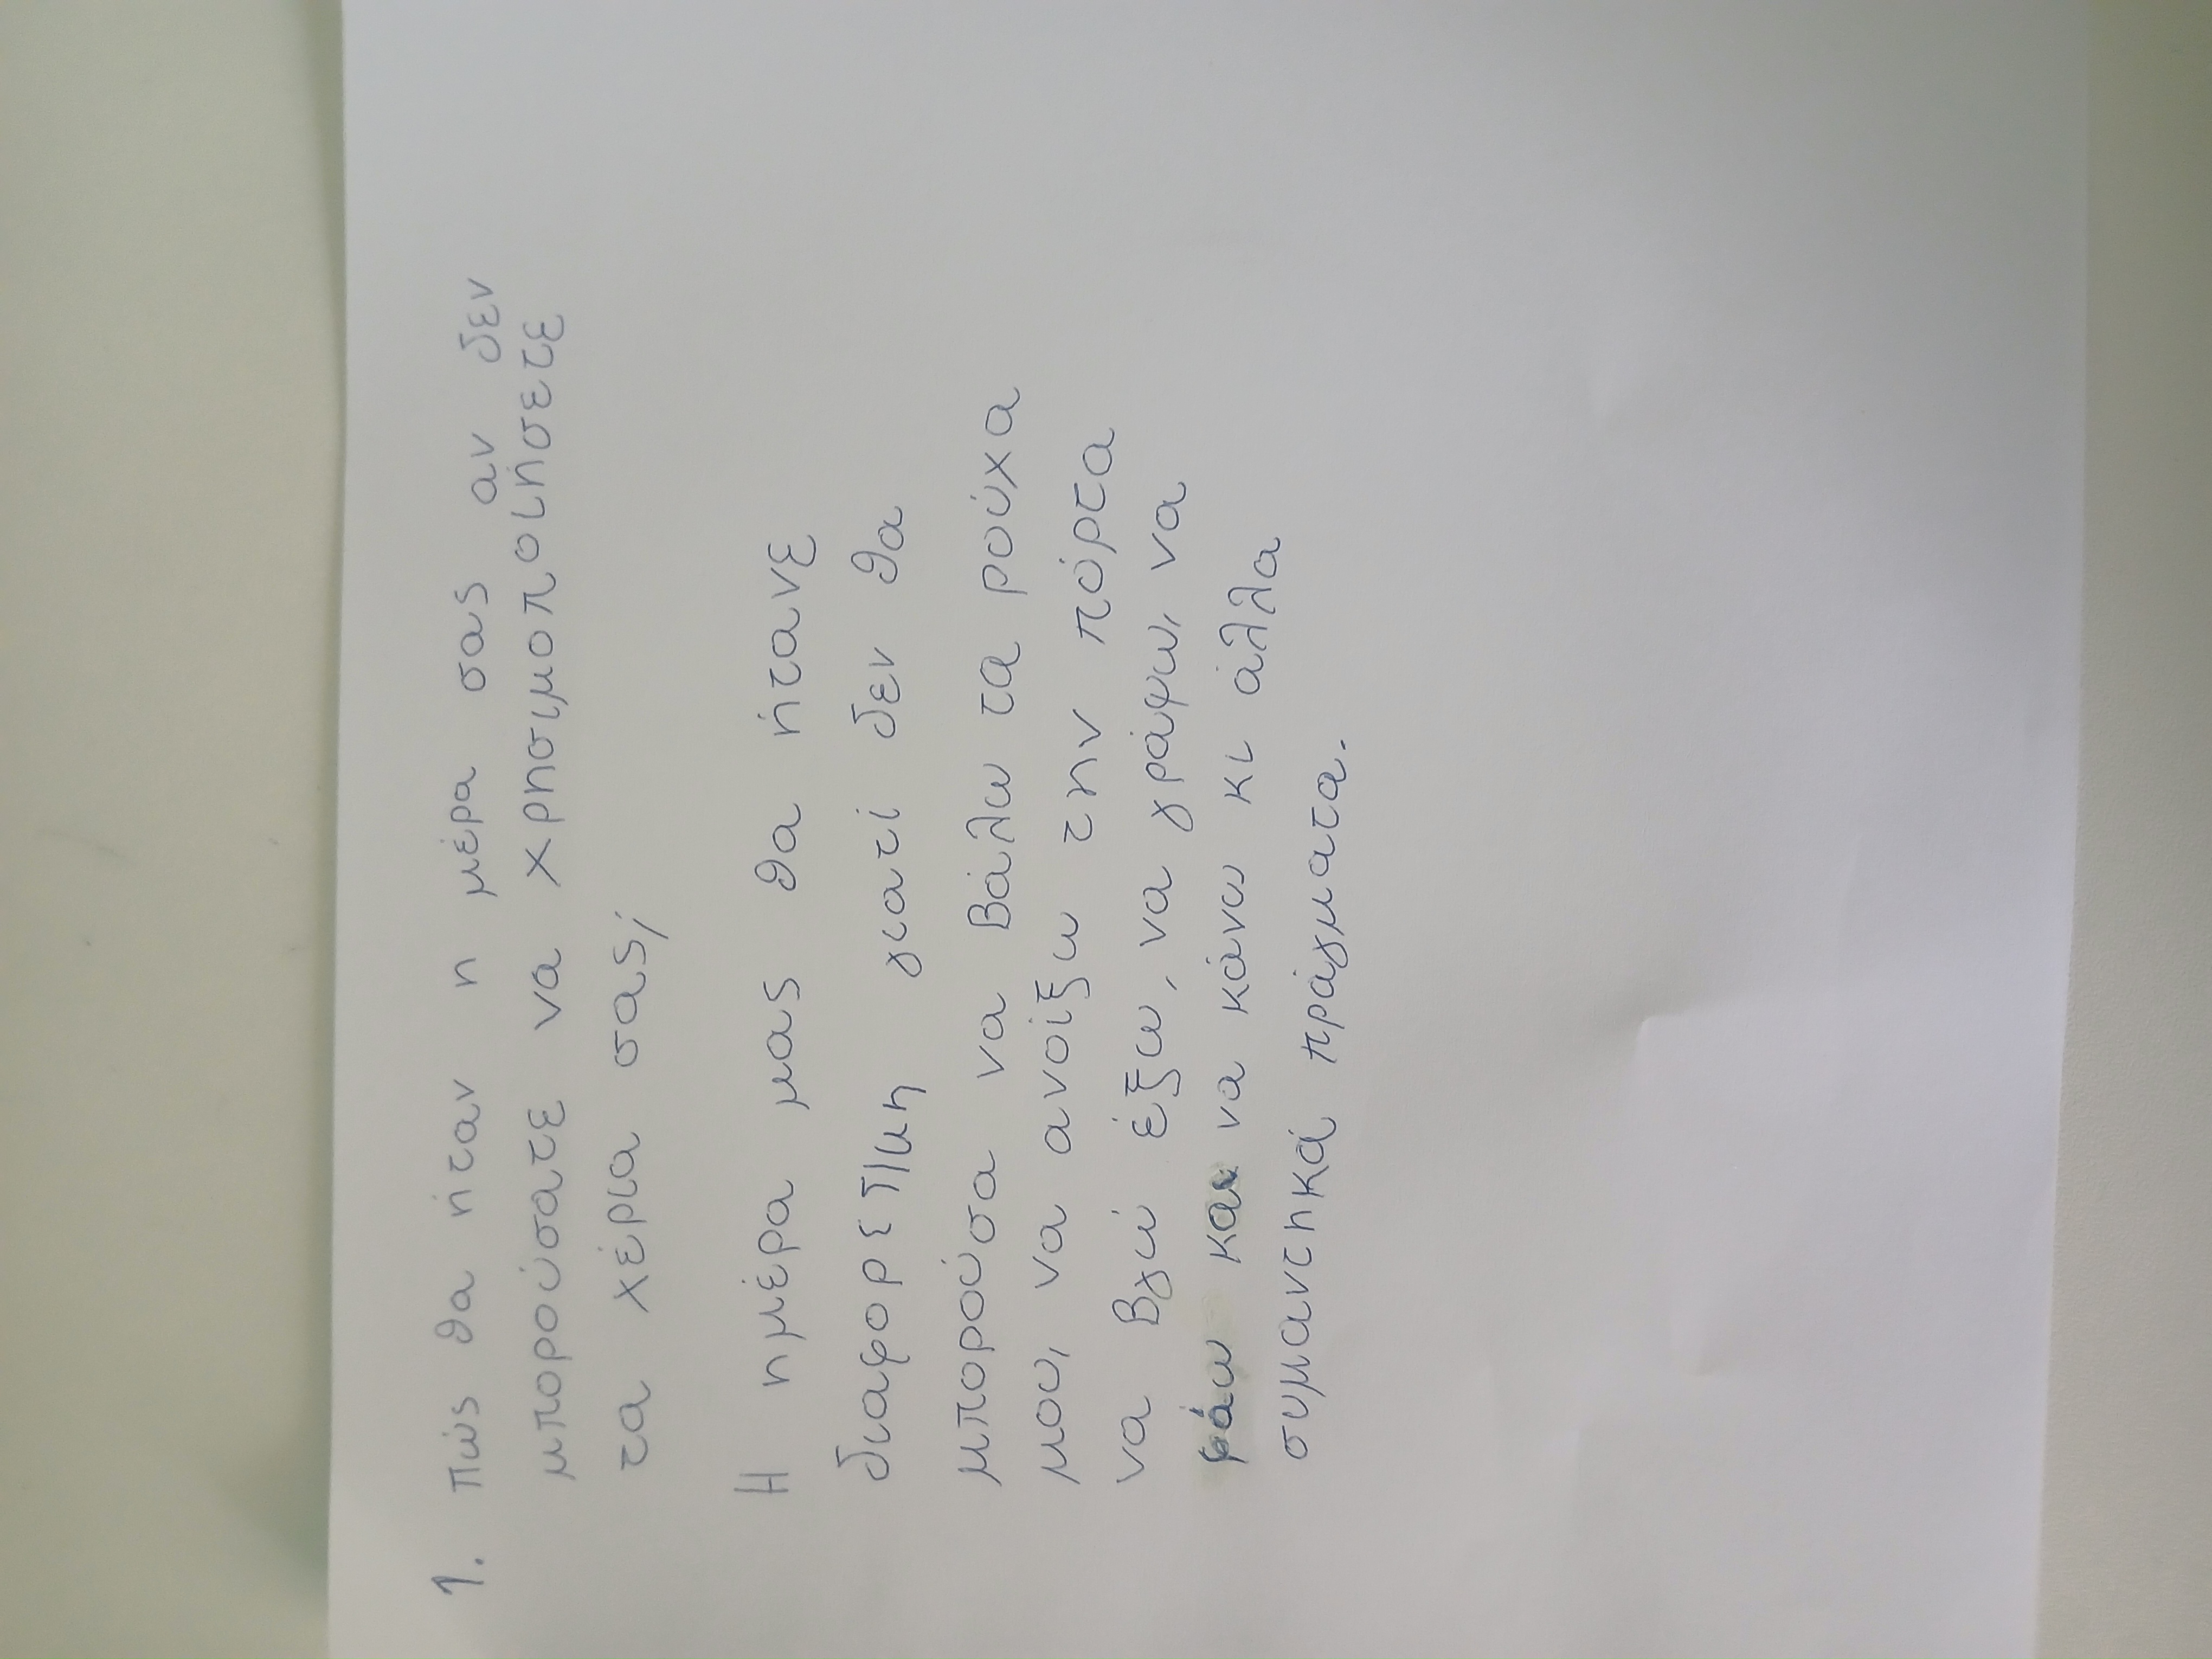 1. πώς θα ήταν η μέρα σας αν δεν
μπορούσατε να χρησιμοποιήσετε
τα χέρια σας;
Η ημέρα μας θα ήτανε
διαφορετικη γιατί δεν θα
μπορούσα να βάλω τα ρούχα
μου, να ανοίξω την πόρτα
να βγώ έξω, να γράψω, να
φάω και να κάνω κι άλλα
συμαντηκά πράγματα.